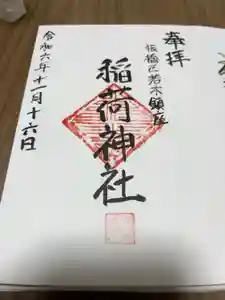 奉拝
板橋区若木鎮座
稲荷神社
令和六年十一月十六日